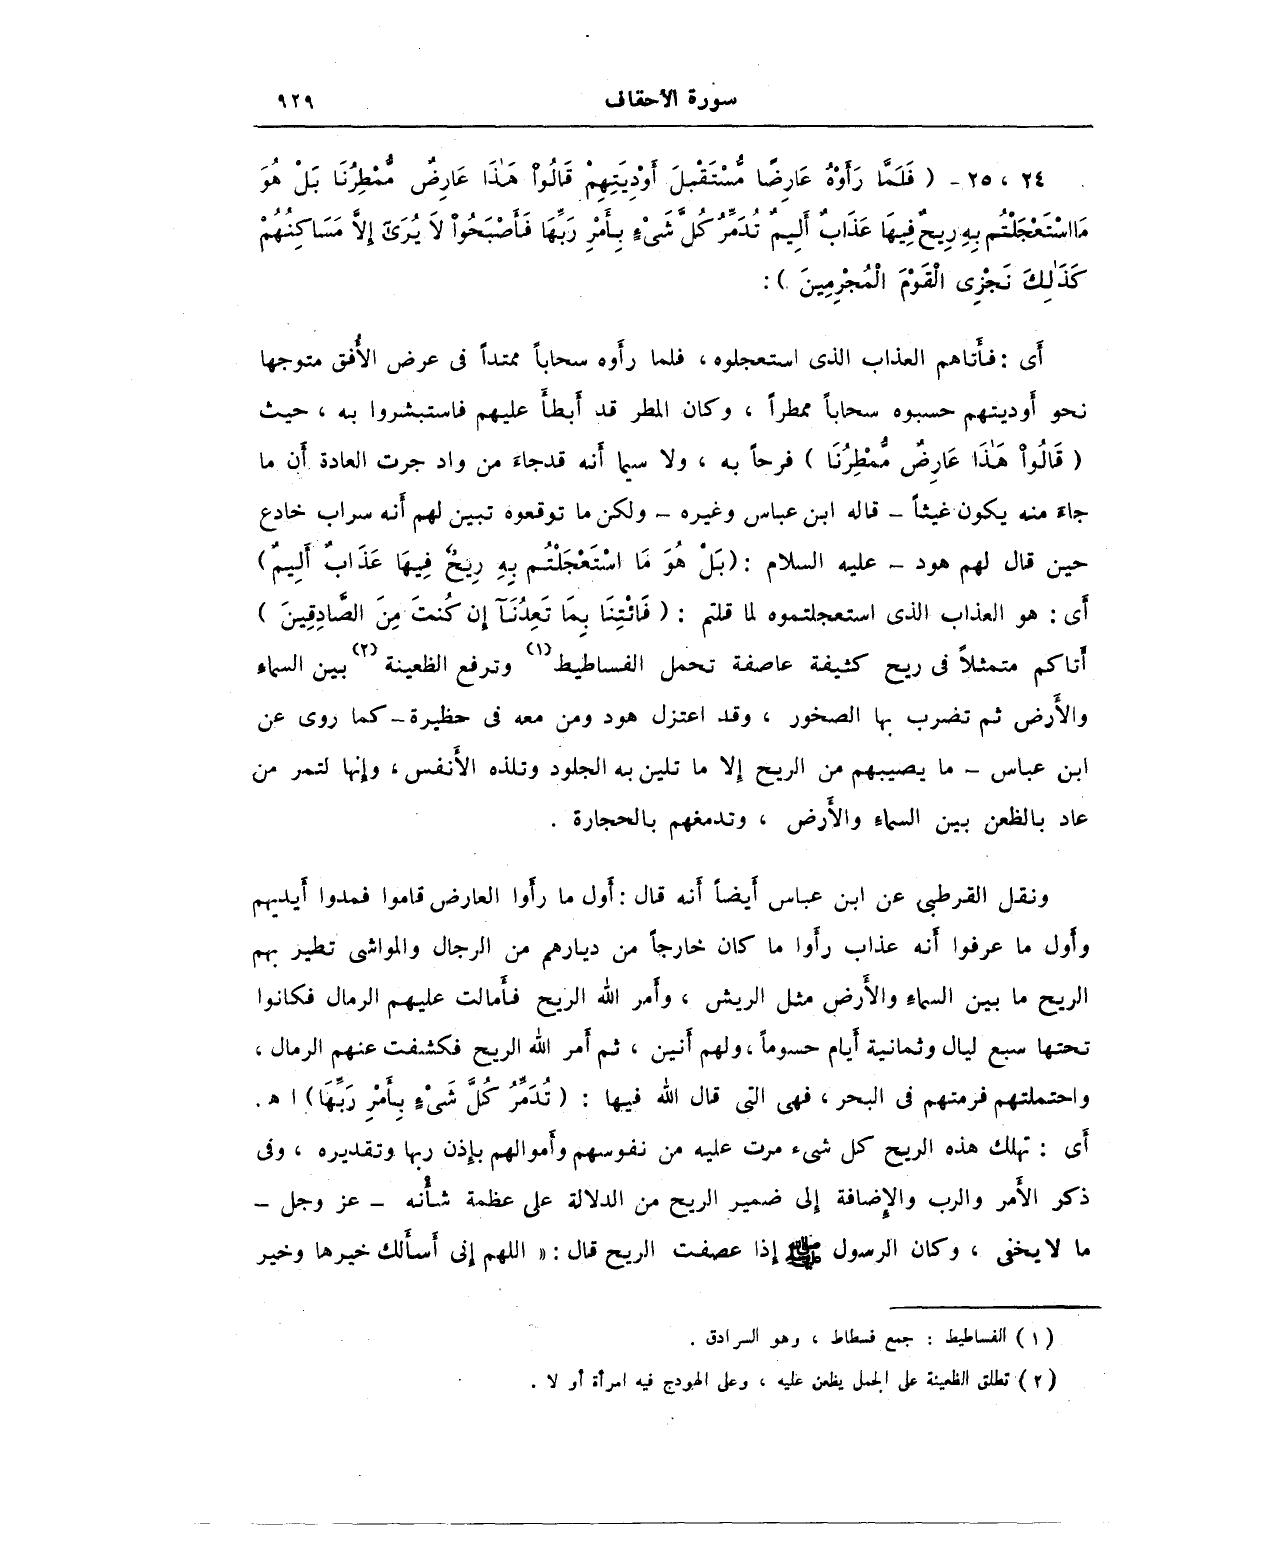 سورة الأحقاف ٩٢٩
٢٤ ، ٢٥ - ( فَلَمَّا رَأَوْهُ عَارِضًا مُّسْتَقْبِلَ أَوْدِيَتِهِمْ قَالُواْ هَٰذَا عَارِضٌ مُّمْطِرُنَا بَلْ هُوَ
مَا اسْتَعْجَلْتُم بِهِ رِيحٌ فِيهَا عَذَابٌ أَلِيمٌ تُدَمِّرُ كُلَّ شَىْءٍ بِأَمْرِ رَبِّهَا فَأَصْبَحُواْ لَا يُرَىٰٓ إِلَّا مَسَاكِنُهُمْ
كَذَٰلِكَ نَجْزِى الْقَوْمَ الْمُجْرِمِينَ ) :
أَى : فأَتاهم العذاب الذى استعجلوه ، فلما رأَوه سحاباً ممتداً فى عرض الأُفق متوجها
نحو أَوديتهم حسبوه سحاباً ممطراً ، وكان المطر قد أَبطأَ عليهم فاستبشروا به ، حيث
( قَالُواْ هَٰذَا عَارِضٌ مُّمْطِرُنَا ) فرحاً به ، ولا سيما أَنه قدجاءَ من واد جرت العادة أَن ما
جاءَ منه يكون غيثاً - قاله ابن عباس وغيره - ولكن ما توقعوه تبين لهم أَنه سراب خادع
حين قال لهم هود - عليه السلام : (بَلْ هُوَ مَا اسْتَعْجَلْتُم بِهِ رِيحٌ فِيهَا عَذَابٌ أَلِيمٌ )
أَى : هو العذاب الذى استعجلتموه لما قلتم : ( فَائْتِنَا بِمَا تَعِدُنَآ إِن كُنتَ مِنَ الصَّادِقِينَ )
أَتاكم متمثلاً فى ريح كثيفة عاصفة تحمل الفساطيط (١) وترفع الظعينة (٢) بين السماء
والأَرض ثم تضرب بها الصخور ، وقد اعتزل هود ومن معه فى حظيرة - كما روى عن
ابن عباس - ما يصيبهم من الريح إلا ما تلين به الجلود وتلذه الأَنفس ، وإنها لتمر من
عاد بالظعن بين السماء والأَرض ، وتدمغهم بالحجارة .
ونقل القرطبى عن ابن عباس أَيضاً أَنه قال : أَول ما رأَوا العارض قاموا فمدوا أَيديهم
وأَول ما عرفوا أَنه عذاب رأَوا ما كان خارجاً من ديارهم من الرجال والمواشى تطير بهم
الريح ما بين السماء والأَرض مثل الريش ، وأَمر الله الريح فأَمالت عليهم الرمال فكانوا
تحتها سبع ليال وثمانية أَيام حسوماً ، ولهم أَنين ، ثم أَمر الله الريح فكشفت عنهم الرمال ،
واحتملتهم فرمتهم فى البحر ، فهى التى قال الله فيها : ( تُدَمِّرُ كُلَّ شَىْءٍ بِأَمْرِ رَبِّهَا ) ا ه .
أَى : تهلك هذه الريح كل شىء مرت عليه من نفوسهم وأَموالهم بإذن ربها وتقديره ، وفى
ذكر الأَمر والرب والإِضافة إلى ضمير الريح من الدلالة على عظمة شأْنه - عز وجل -
ما لا يخفى ، وكان الرسول ﷺ إذا عصفت الريح قال : « اللهم إنى أَسأَلك خيرها وخير
( ١ ) الفساطيط : جمع فسطاط ، وهو السرادق .
( ٢ ) تطلق الظعينة على الجمل يظعن عليه ، وعلى الهودج فيه امرأة أو لا .